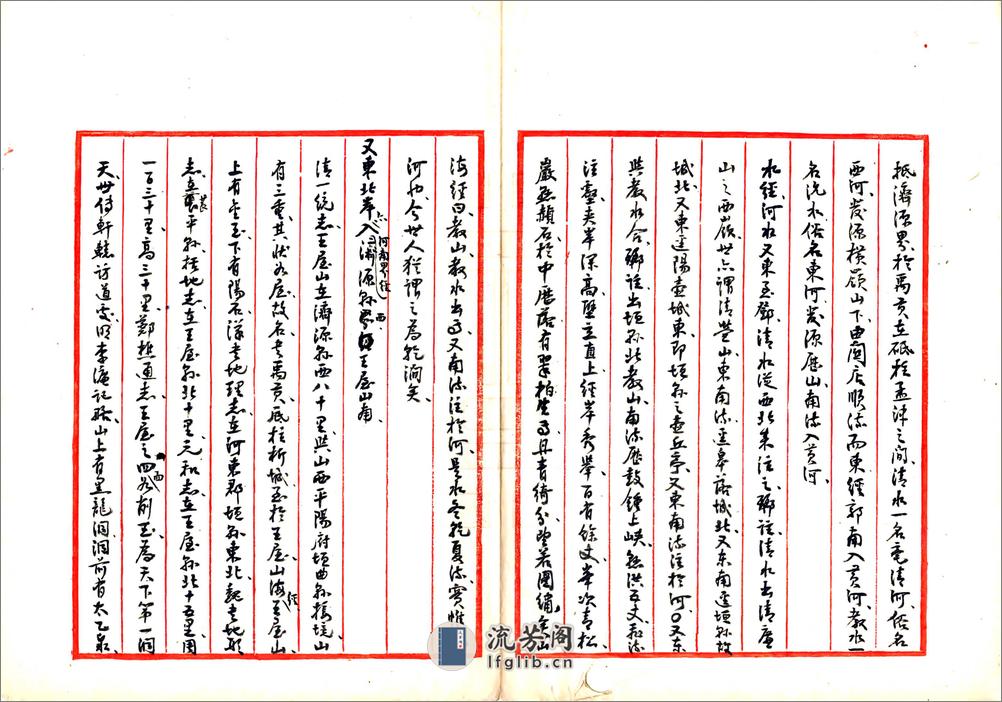 抵濟源界於禹貢在砥柱孟津之間清水一名亳清河俗名
西河發源橫嶺山下由聞店順流而東經郭南入黃河教水一
名沇水俗名東河發源歷山南流入黃河
水經河水又東至鄧清水從西北来注之酈注清水出清廉
山之西嶺世亦謂清營山東南流逕皋落城北又東南逕垣縣故
城北又東逕陽壺城東即垣縣之壺丘亭又東南流注於河〇又東
與教水合酈注出垣縣北教山南流歷鼓鍾上峽懸洪五丈飛流
注壑夹岸深高壁立直上輕崖秀舉百有餘丈峯次青松
巖懸赬石於中歷落有翠柏生焉丹青綺分望若圖繡矣山
海經曰教山教水出焉又南流注於河是水冬乾夏流實惟
河也今世人猶謂之為乾澗矣
又東北岸入濟源縣界西王屋山南
河南界經
清一統志王屋山在濟源縣西八十里與山西平陽府垣曲縣接境山
有三重其状如屋故名書禹貢底柱析城至於王屋山海經王屋山
上有金玉下有陽石漢書地理志在河東郡垣縣東北魏書地形
志在長平縣括地志在王屋縣北十里元和志在王屋縣北十五里周
一百三十里高三十里鄭樵通志王屋之四面如削玉為天下第一洞
天世傳軒轅訪道處明李濂記略山上有黑龍洞洞前有太乙泉
流芳阁
lfglib.cn